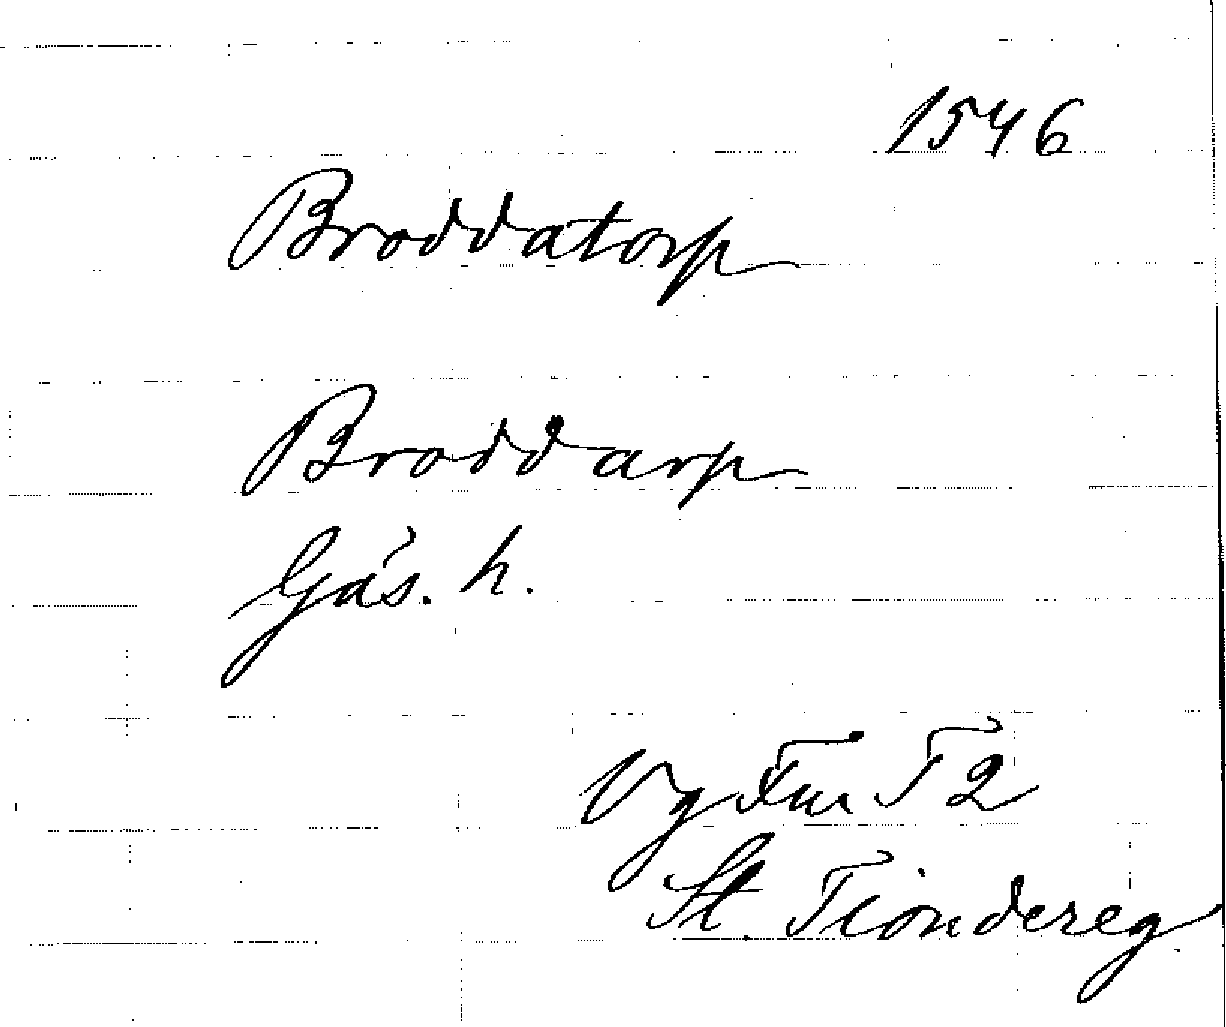 1546
Broddatorp
Broddarp
Gäs. h.
Vg T2
St. Tiondereg